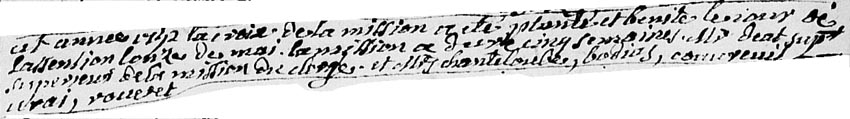 cet annee 1712 la croix de la mission a ete planté et benite le jour de
lassention lonze de mai. la mission a duré cinq semaines. Mr deat supr
superieur de la mission du clergé et Mrs chanteloube, bodios,
vrai, rouveret